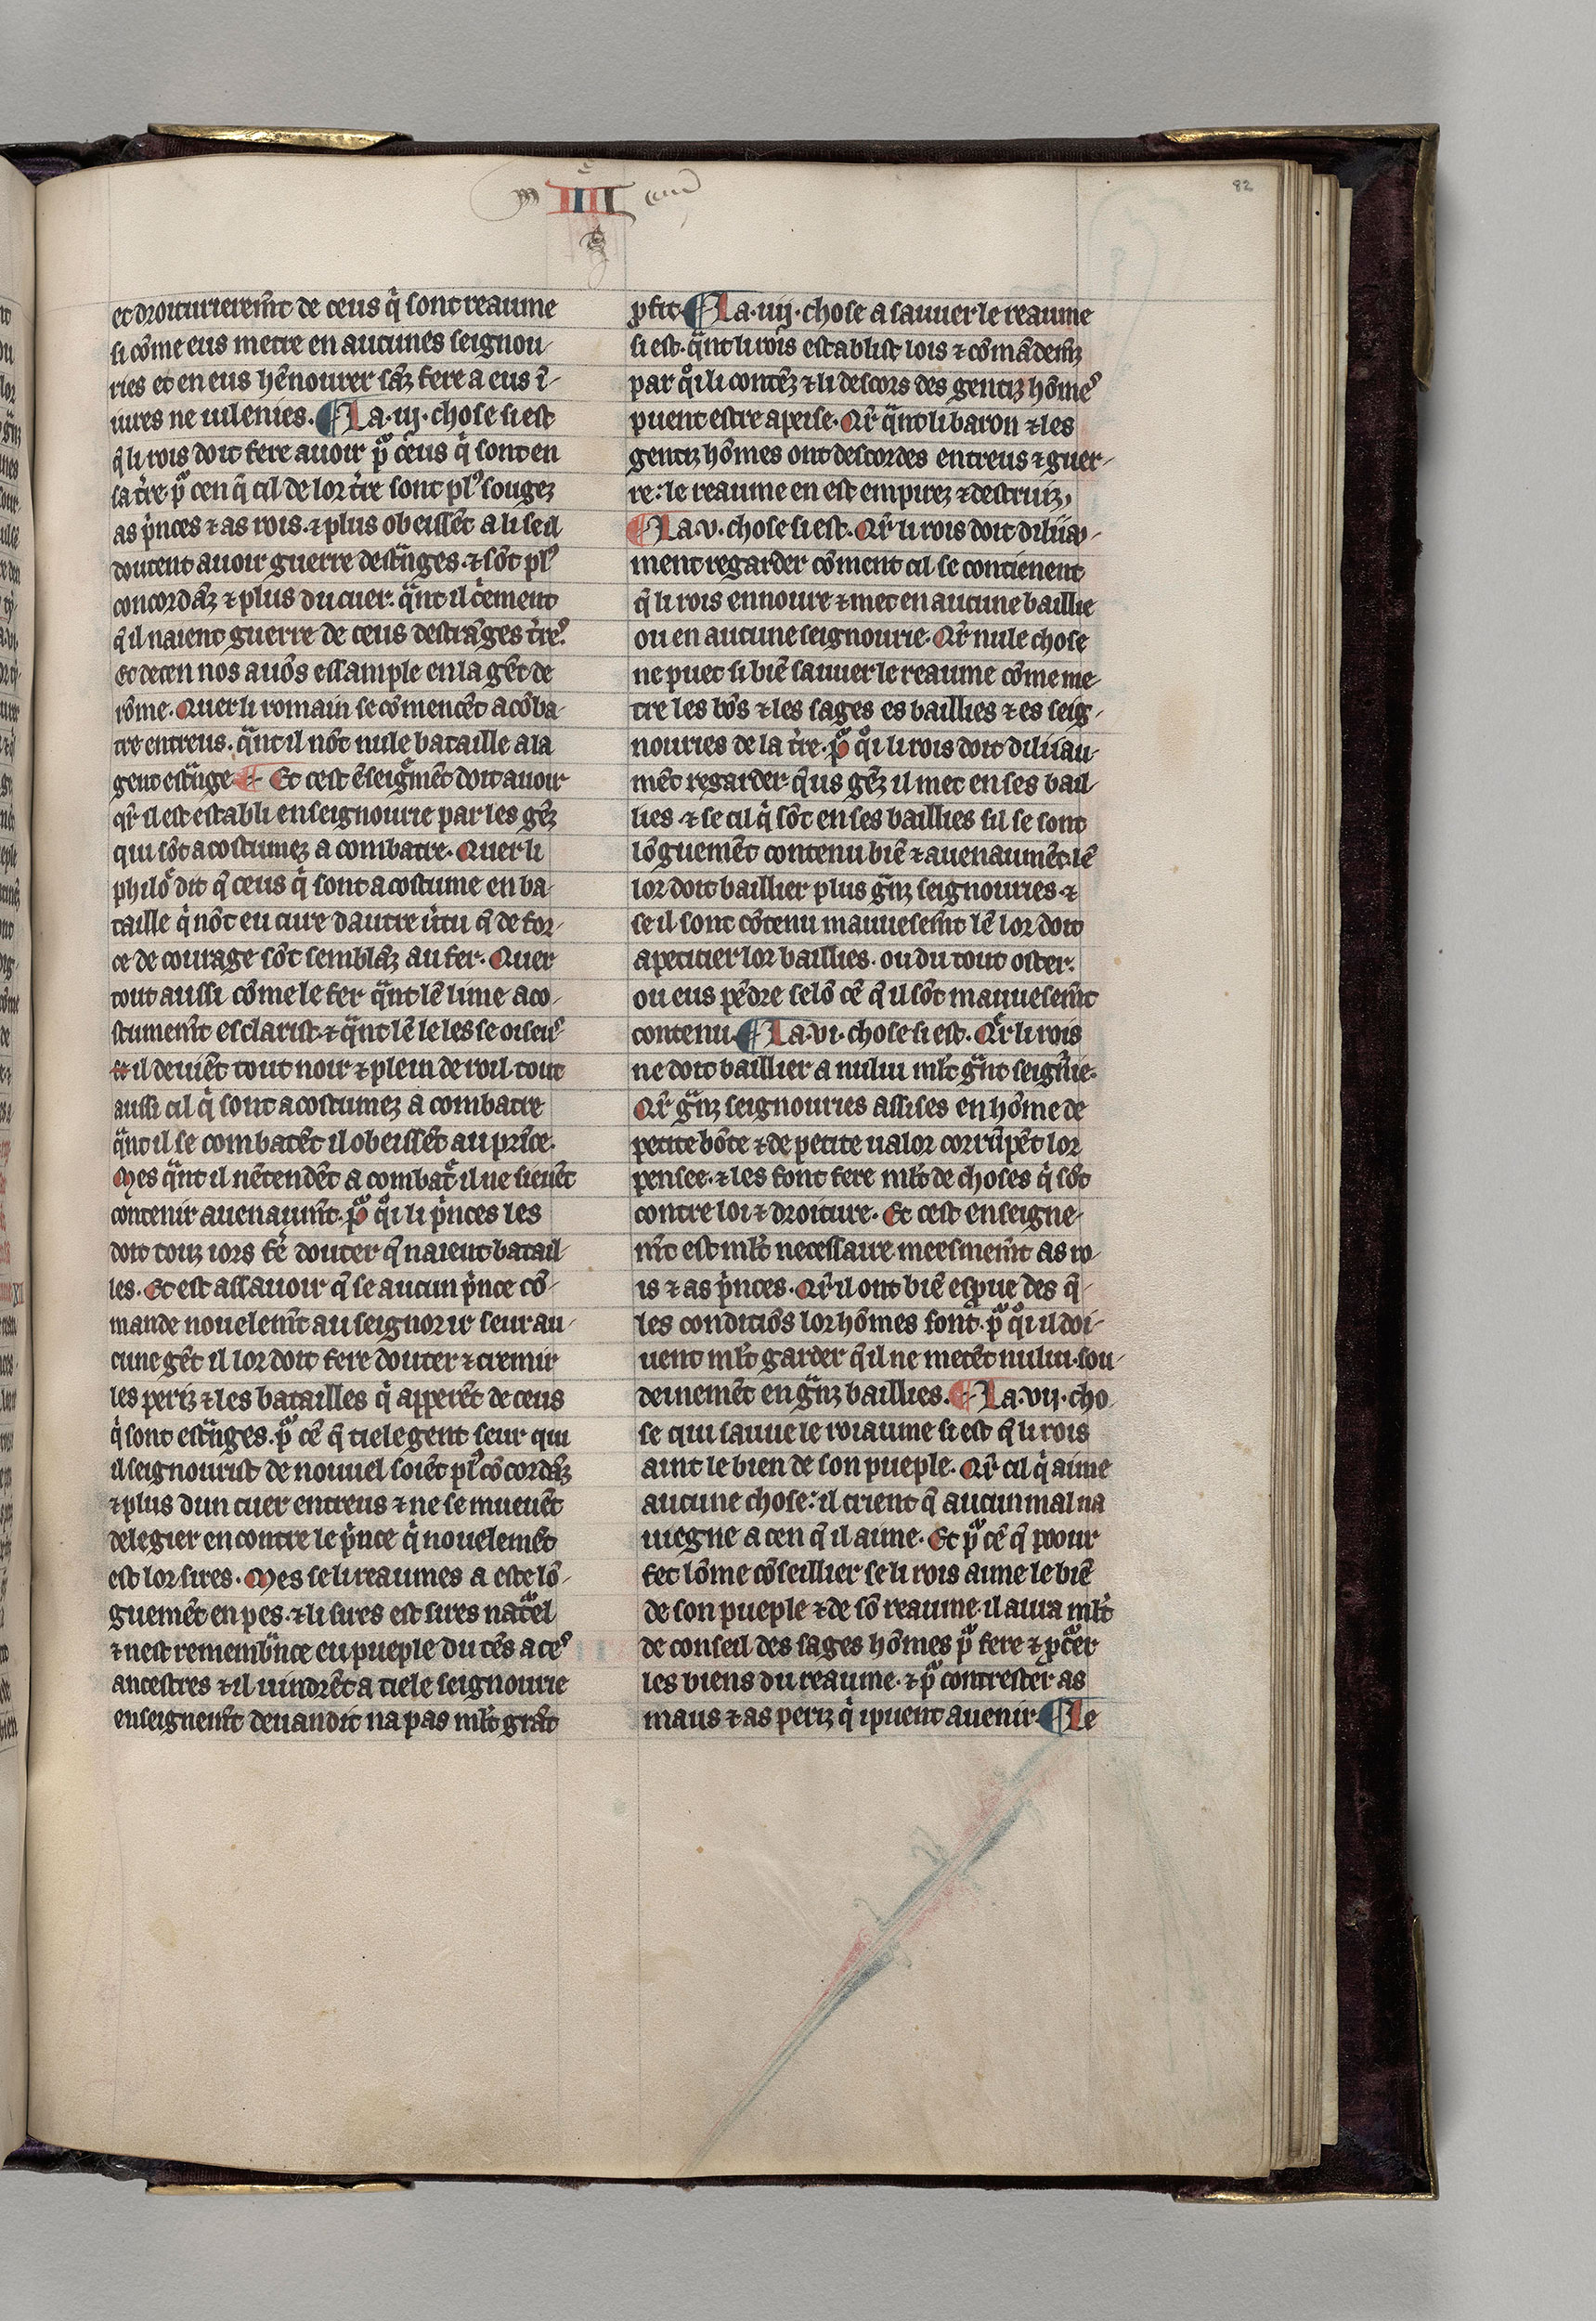 IIII
82
et droiturierem̃t de ceus q̓ sont reaume
si cõme eus metre en aucunes seignou-
ries et en eus hẽnourer sãz fere a eus ĩ-
iures ne uilenies. ¶ La .iij. chose si est
q̃ li rois doit fere auoir po᷑ ceus q̓ sont en
sa t̓re. po᷑ cen q̃ cil de lor t̓re sont plꝰ sougez
as p̓nces ⁊ as rois. ⁊ plus obeissẽt a li se il
doutent auoir guerre destᷓnges. ⁊ sõt plꝰ
concordãz ⁊ plus du cuer. qᷓnt il c̓ement
q̃ il naient guerre de ceus destrãges t̓reꝰ.
Et de cen nos auõs essample en la gẽt de
rõme. Quer li romain se cõmencẽt a cõba-
tre entreus. qᷓnt il nõt nule bataille a la
gent estᷓnge. ¶ Et cest ẽseigm̃ẽt doit auoir
qr̃ il est establi en seignourie par les gẽz
qui sõt acostumez a combatre. Quer li
philo᷑ dit q̃ ceus q̓ sont acostume en ba-
taille q̓ nõt eu cure dautre u̓tu q̃ de for-
ce de courage sõt semblãz au fer. Quer
tout aussi cõme le fer qᷓnt lẽ lime aco-
stumem̃t esclarist. ⁊ qᷓnt lẽ le lesse oiseuꝰ
il deuiẽt tout noir ⁊ plein de roil. tout
aussi cil q̓ sont acostumez a combatre
qᷓnt il se combatẽt il obeissẽt au prĩce.
Mes qᷓnt il nẽtendẽt a combat᷑ il ne seuẽt
contenir auenaum̃t. po᷑ qͦi li p̓nces les
doit touz iors fẽ douter q̃ naient batail-
les. Et est assauoir q̃ se aucun p̓nce cõ-
mande nouelem̃t au seignorir seur au-
cune gẽt il lor doit fere douter ⁊ cremir
les periz ⁊ les batailles q̓ apperẽt de ceus
q̓ sont estᷓnges. po᷑ cẽ q̃ tiele gent seur qui
il seignourist de nouuel soiẽt plꝰ cõcordãz
⁊ plus dun cuer entreus ⁊ ne se mueuẽt
de legier encontre le p̓nce q̓ nouelemẽt
est lor sires. Mes se li reaumes a este lõ-
guemẽt en pes. ⁊ li sires est sires nat᷑el
⁊ nest remembᷓnce eu pueple du tẽs a ceꝰ
ancestres ⁊ il uindrẽt a tiele seignourie
enseignem̃t deuandit na pas ml̃t grãt
ꝓfit. ¶ La .iiij. chose a sauuer le reaume
si est. qᷓnt li rois establist lois ⁊ cõmãdem̃z
par qͦi li contẽz ⁊ li descors des gentiz hõmeꝰ
puent estre apeise. Qr̃ qᷓnt li baron ⁊ les
gentiz hõmes ont descordes entreus ⁊ guer-
re: le reaume en est empirez ⁊ destruiz,
¶ La .v. chose si est. Qr̃ li rois doit diliia-
ment regarder cõment cil se contienent
q̃ li rois ennoure ⁊ met en aucune baillie
ou en aucune seignourie. Qr̃ nule chose
ne puet si biẽ sauuer le reaume cõme me-
tre les bõs ⁊ les sages es baillies ⁊ es seig-
nouries de la t̓re. po᷑ qͦi li rois doit diliiau-
mẽt regarder q̃us gẽz il met en ses bail-
lies. ⁊ se cil q̓ sõt en ses baillies sil se sont
lõguemẽt contenu biẽ ⁊ auenaumẽt. lẽ
lor doit baillier plus gᷓnz seignouries. ⁊
se il sont cõtenu mauuesem̃t lẽ lor doit
apeticier lor baillies. ou du tout oster.
ou eus pẽdre selõ cẽ q̃ il sõt mauuesem̃t
contenu. ¶ La .vi. chose si est. Qr̃ li rois
ne doit baillier a nului ml̃t gᷓnt seign̓ie.
Qr̃ gᷓnz seignouries assises en hõme de
petite bõte ⁊ de petite ualor corrũpẽt lor
pensee. ⁊ les font fere ml̃t de choses q̓ sõt
contre loi ⁊ droiture. Et cest enseigne-
m̃t est ml̃t necessaire meesmem̃t as ro-
is ⁊ as p̓nces. Qr̃ il ont biẽ espue des q̃-
les conditiõs lor hõmes sont. po᷑ qͦi il doi-
uent ml̃t garder q̃ il ne metẽt nului. sou-
deinemẽt en gᷓnz baillies. ¶ La .vij. cho
se qui sauue le roiaume si est q̃ li rois
aint le bien de son pueple. Qr̃ cil q̓ aime
aucune chose: il crient q̃ aucun mal na
uiegne a cen q̃ il aime. Et po᷑ cẽ q̃ poour
fet lõme cõseillier se li rois aime le biẽ
de son pueple ⁊ de sõ reaume. il aura ml̃t
de conseil des sages hõmes po᷑ fere ⁊ ꝓc᷑er
les biens du reaume. ⁊ po᷑ contrester as
maus ⁊ as periz q̓ i puent auenir. ¶ Le